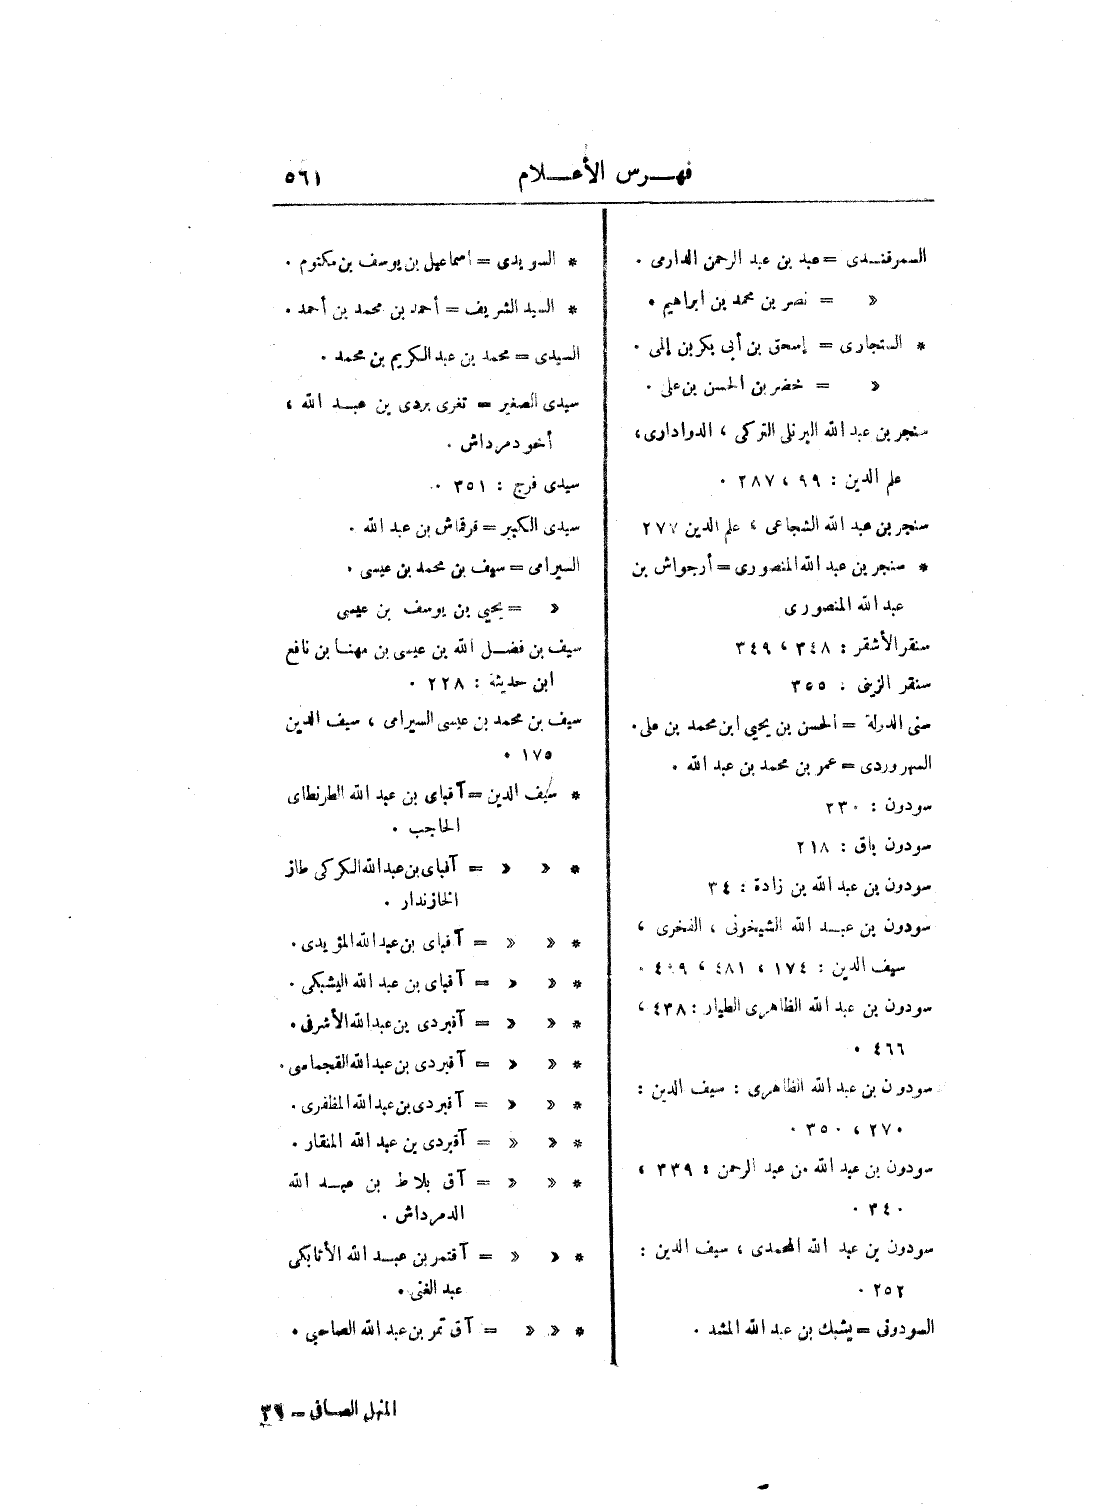 فهرس الأعلام
٥٦١
السمرقندى = عبد بن عبد الرحمن الدارمى .
« = نصر بن محمد بن ابراهيم .
* السنجارى = إسحق بن أبى بكر بن إلمى .
« = خضر بن الحسن بن على .
سنجر بن عبد الله البرنلى التركى ، الدوادارى ،
علم الدين : ٩٩ ، ٢٨٧ .
سنجر بن عبد الله الشجاعى ، علم الدين ٢٧٧
* سنجر بن عبد الله المنصورى = أرجواش بن
عبد الله المنصورى
سنقر الأشقر : ٣٤٨ ، ٣٤٩
سنقر الزينى : ٣٥٥
سنى الدولة = الحسن بن يحيى ابن محمد بن على .
السهروردى = عمر بن محمد بن عبد الله .
سودون : ٢٣٠
سودون باق : ٢١٨
سودون بن عبد الله بن زادة : ٣٤
سودون بن عبد الله الشيخونى ، الفخرى ،
سيف الدين : ١٧٤ ، ٤٨١ ، ٤٠٩ .
سودون بن عبد الله الظاهرى الطيار : ٤٣٨ ،
٤٦٦ .
سودون بن عبد الله الظاهرى : سيف الدين :
٢٧٠ ، ٣٥٠ .
سودون بن عبد الله من عبد الرحمن : ٣٣٩ ،
٣٤٠ .
سودون بن عبد الله المحمدى ، سيف الدين :
٢٥٢ .
السودونى = يشبك بن عبد الله المشد .
* السويدى = اسماعيل بن يوسف بن مكتوم .
* السيد الشريف = أحمد بن محمد بن أحمد .
السيدى = محمد بن عبد الكريم بن محمد .
سيدى الصغير = تغرى بردى بن عبد الله ،
أخو دمرداش .
سيدى فرج : ٣٥١ .
سيدى الكبير = قرقماش بن عبد الله .
السيرامى = سيف بن محمد بن عيسى .
« = يحيى بن يوسف بن عيسى
سيف بن فضل الله بن عيسى بن مهنا بن نافع
ابن حديثة : ٢٢٨ .
سيف بن محمد بن عيسى السيرامى ، سيف الدين
١٧٥ .
* سيف الدين = آقباى بن عبد الله الطرنطاى
الحاجب .
* « « = آقباى بن عبد الله الكركى طاز
الخازندار .
* « « = آقباى بن عبد الله المؤيدى .
* « « = آقباى بن عبد الله اليشبكى .
* « « = آقبردى بن عبد الله الأشرفى .
* « « = آقبردى بن عبد الله القجماسى .
* « « = آقبردى بن عبد الله المظفرى .
* « « = آقبردى بن عبد الله المنقار .
* « « = آق بلاط بن عبد الله
الدمرداش .
* « « = آقتمر بن عبد الله الأتابكى
عبد الغنى .
* « « = آق تمر بن عبد الله الصاحبى .
المنهل الصافى – ٣٦